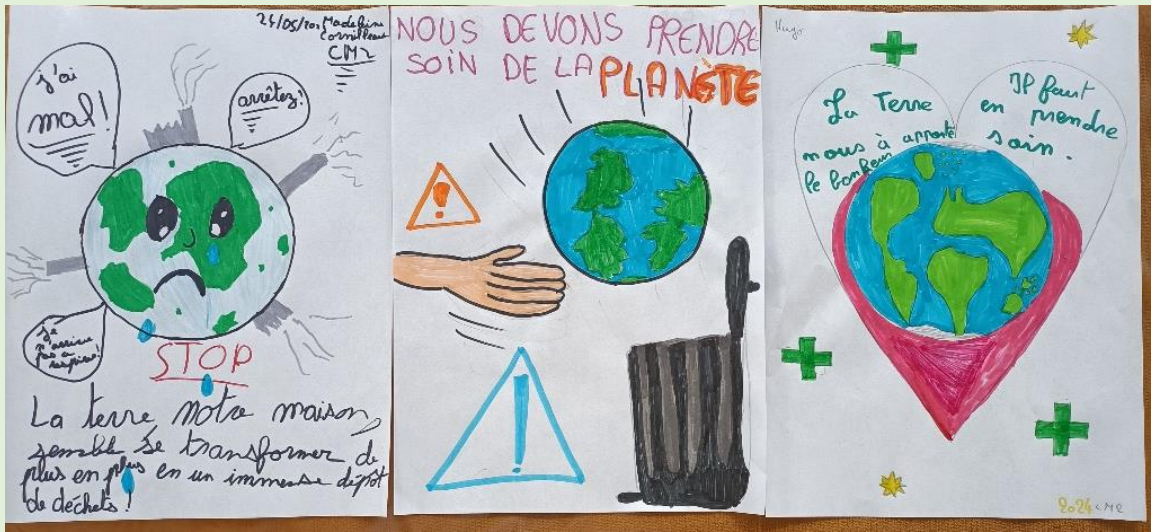 24/05/202 Madeleine
CM2
j'ai
mal!
arrêtez!
je
n'arrive
pas a
respirer!
STOP
La terre, notre maison,
semble se transformer de
plus en plus en un immense dépôt
de déchets!
NOUS DEVONS PRENDRE
SOIN DE LA PLANÈTE
Hugo
La Terre
nous à apporté
le bonheur
Il faut
en prendre
soin.
2024 CM2